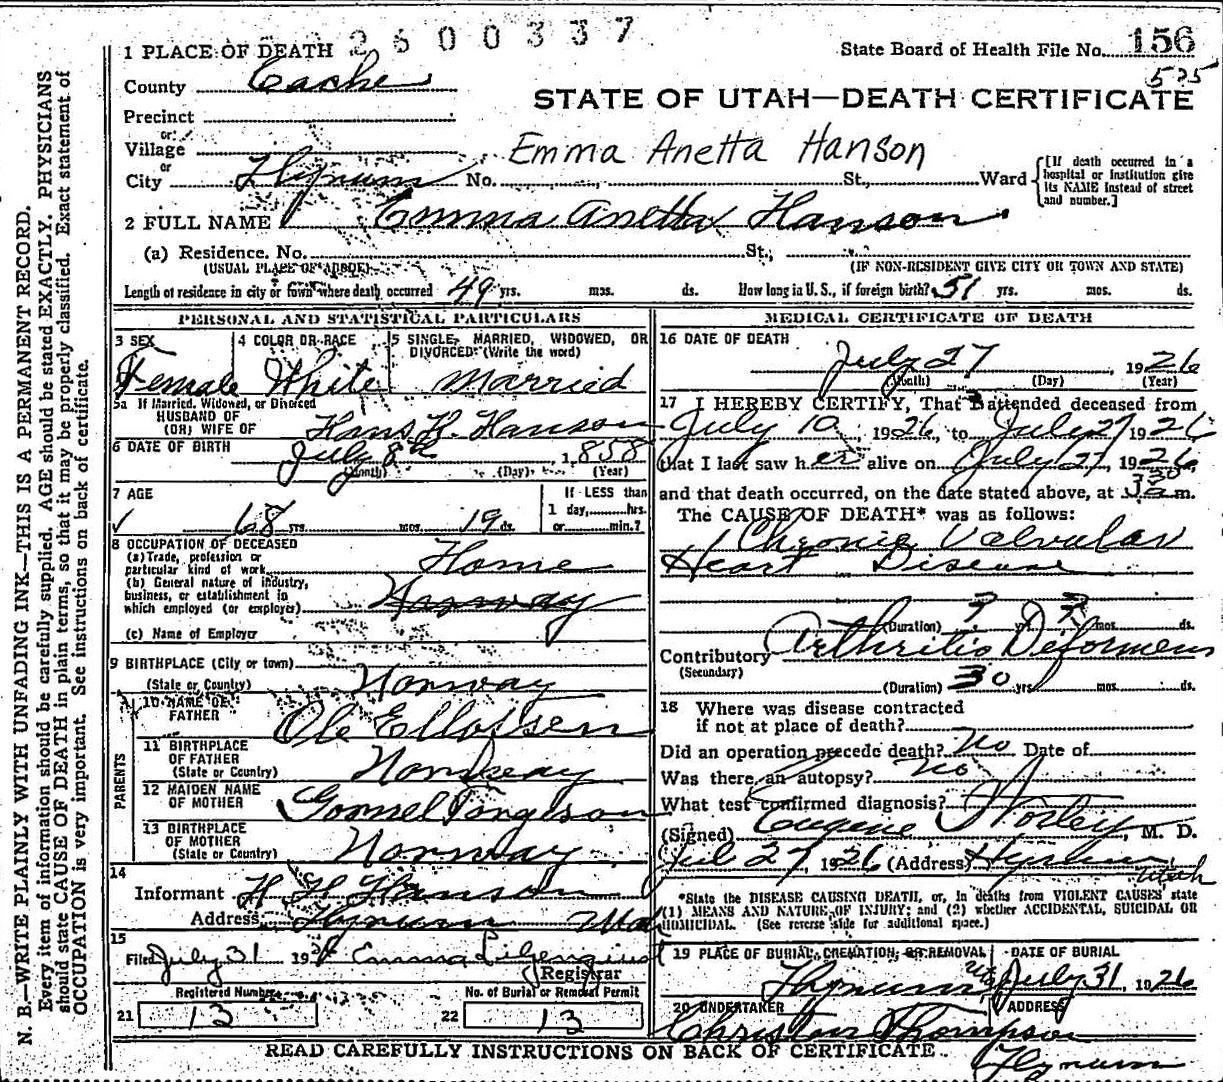 2600337
1 PLACE OF DEATH
State Board of Health File No. 156
525
County Cache
STATE OF UTAH—DEATH CERTIFICATE
Precinct
or
Village
Emma Anetta Hanson
or
City Hyrum No. St., Ward
[If death occurred in a hospital or institution give its NAME instead of street and number.]
2 FULL NAME Emma Anetta Hanson
(a) Residence. No. St.,
(USUAL PLACE OF ABODE) (IF NON-RESIDENT GIVE CITY OR TOWN AND STATE)
Length of residence in city or town where death occurred 49 yrs. mos. ds. How long in U. S., if foreign birth? 51 yrs. mos. ds.
PERSONAL AND STATISTICAL PARTICULARS
3 SEX
Female
4 COLOR OR RACE
White
5 SINGLE, MARRIED, WIDOWED, OR DIVORCED (Write the word)
Married
5a If Married, Widowed, or Divorced
HUSBAND OF
(OR) WIFE OF Hans H. Hanson
6 DATE OF BIRTH July 8th, 1858
(Month) (Day) (Year)
7 AGE
68 yrs. mos. 19 ds.
If LESS than
1 day, hrs.
or min.?
8 OCCUPATION OF DECEASED
(a) Trade, profession or
particular kind of work Home
(b) General nature of industry,
business, or establishment in
which employed (or employer) Norway
(c) Name of Employer
9 BIRTHPLACE (City or town)
(State or Country) Norway
PARENTS
10 NAME OF
FATHER Ole
11 BIRTHPLACE
OF FATHER
(State or Country) Norway
12 MAIDEN NAME
OF MOTHER
13 BIRTHPLACE
OF MOTHER
(State or Country) Norway
14
Informant H. H. Hanson
Address Hyrum Utah
15
Filed July 31 192 Emma
Registrar
Registered Number
21 13
No. of Burial or Removal Permit
22 13
MEDICAL CERTIFICATE OF DEATH
16 DATE OF DEATH
July 27, 1926
(Month) (Day) (Year)
17 I HEREBY CERTIFY, That I attended deceased from
July 10, 1926, to July 27 1926
that I last saw her alive on July 27, 1926
and that death occurred, on the date stated above, at 330 a m.
The CAUSE OF DEATH* was as follows:
Chronic Valvular
Heart Disease
(Duration) 3 yrs. 3 mos. ds.
Contributory Arthritis Deformens
(Secondary)
(Duration) 30 yrs. mos. ds.
18 Where was disease contracted
if not at place of death?
Did an operation precede death? No Date of
Was there an autopsy? No
What test confirmed diagnosis?
(Signed) Eugene Worley, M. D.
Jul 27, 1926 (Address) Hyrum
Utah
*State the DISEASE CAUSING DEATH, or, in deaths from VIOLENT CAUSES, state
(1) MEANS AND NATURE OF INJURY; and (2) whether ACCIDENTAL, SUICIDAL OR
HOMICIDAL. (See reverse side for additional space.)
19 PLACE OF BURIAL, CREMATION, OR REMOVAL
Hyrum Ut
DATE OF BURIAL
July 31, 1926
20 UNDERTAKER
Christian Thompson
ADDRESS
Hyrum
READ CAREFULLY INSTRUCTIONS ON BACK OF CERTIFICATE.
N. B.—WRITE PLAINLY WITH UNFADING INK—THIS IS A PERMANENT RECORD.
Every item of information should be carefully supplied. AGE should be stated EXACTLY. PHYSICIANS
should state CAUSE OF DEATH in plain terms, so that it may be properly classified. Exact statement of
OCCUPATION is very important. See instructions on back of certificate.